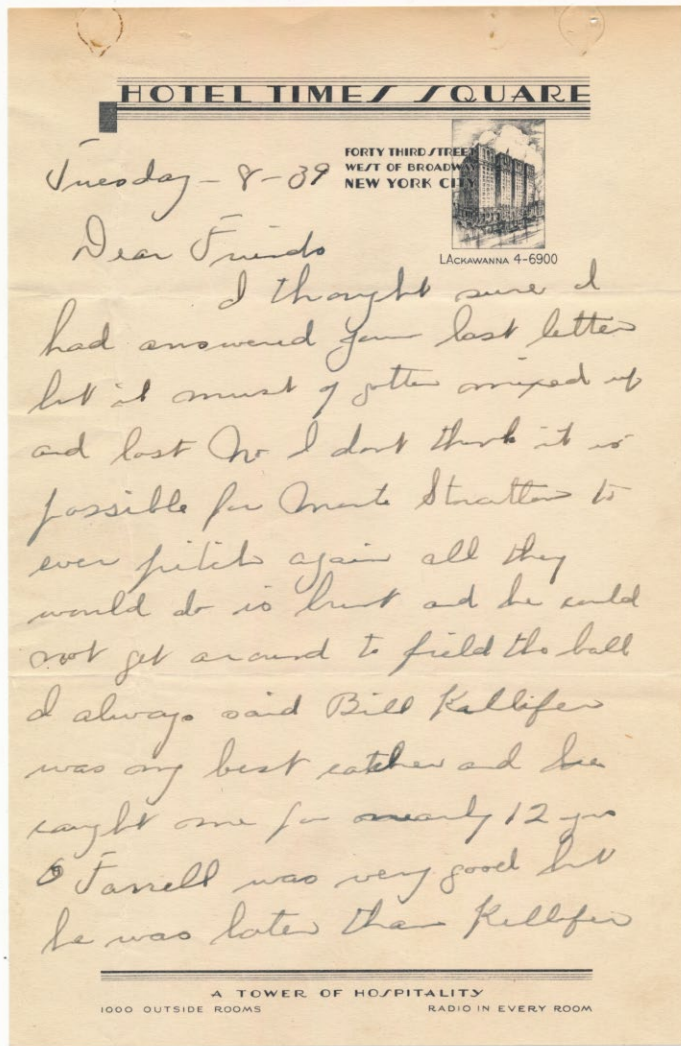 HOTEL TIMES SQUARE
FORTY THIRD STREET
WEST OF BROADWAY
NEW YORK CITY
LACKAWANNA 4-6900
Tuesday - 8-39
Dear Friends
I thought sure I
had answered your last letter
but it must of gotten mixed up
and lost No I dont think it is
possible for Monte Stratton to
ever pitch again all they
would do is bunt and he could
not get around to field the ball
I always said Bill Killifer
was my best catcher and he
caught me for nearly 12 yrs
O Farrell was very good but
he was later than Killifer
A TOWER OF HOSPITALITY
1000 OUTSIDE ROOMS
RADIO IN EVERY ROOM